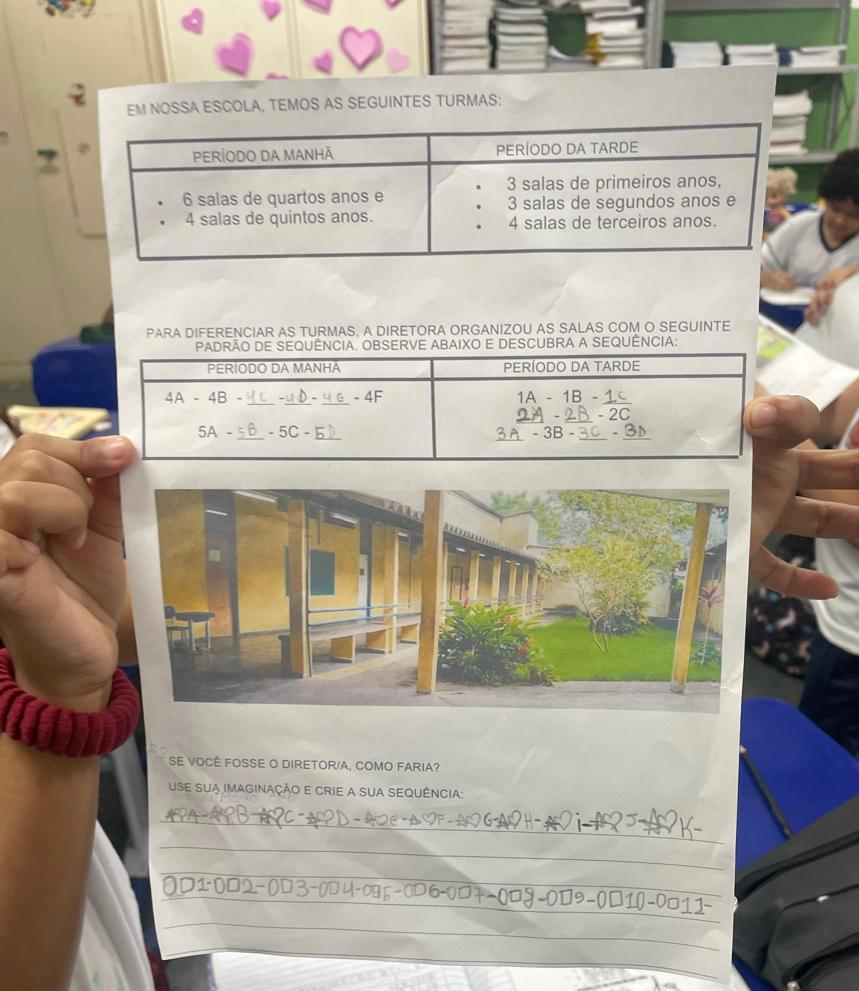 EM NOSSA ESCOLA, TEMOS AS SEGUINTES TURMAS:
PERÍODO DA MANHÃ
• 6 salas de quartos anos e
• 4 salas de quintos anos.
PERÍODO DA TARDE
• 3 salas de primeiros anos,
• 3 salas de segundos anos e
• 4 salas de terceiros anos.
PARA DIFERENCIAR AS TURMAS, A DIRETORA ORGANIZOU AS SALAS COM O SEGUINTE
PADRÃO DE SEQUÊNCIA. OBSERVE ABAIXO E DESCUBRA A SEQUÊNCIA:
PERÍODO DA MANHÃ
4A - 4B - 4C - 4D - 4E - 4F
5A - 5B - 5C - 5D
PERÍODO DA TARDE
1A - 1B - 1C
2A - 2B - 2C
3A - 3B - 3C - 3D
SE VOCÊ FOSSE O DIRETOR/A, COMO FARIA?
USE SUA IMAGINAÇÃO E CRIE A SUA SEQUÊNCIA:
☆♡A-☆♡B-☆♡C-☆♡D-☆♡E-☆♡F-☆♡G-☆♡H-☆♡i-☆♡J-☆♡K-
0□1-0□2-0□3-0□4-0□5-0□6-0□7-0□8-0□9-0□10-0□11-